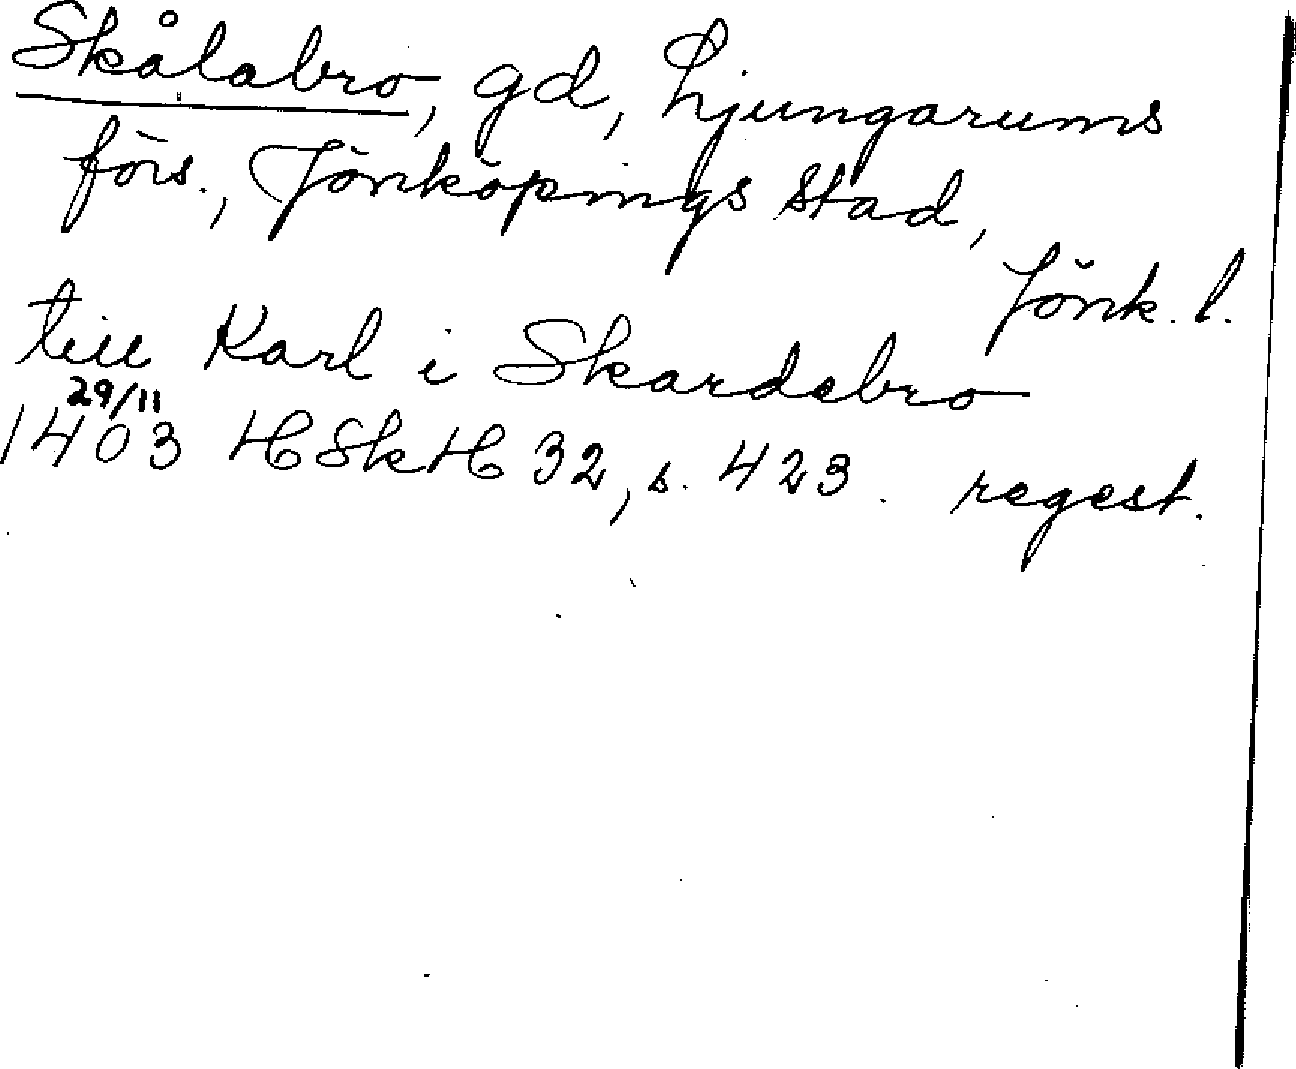 Skålabro, gd, Ljungarums
förs., Jönköpings stad,
Jönk. l.
till Karl i Skardabro
29/11
1403 HSkH 32, s. 423. regest.